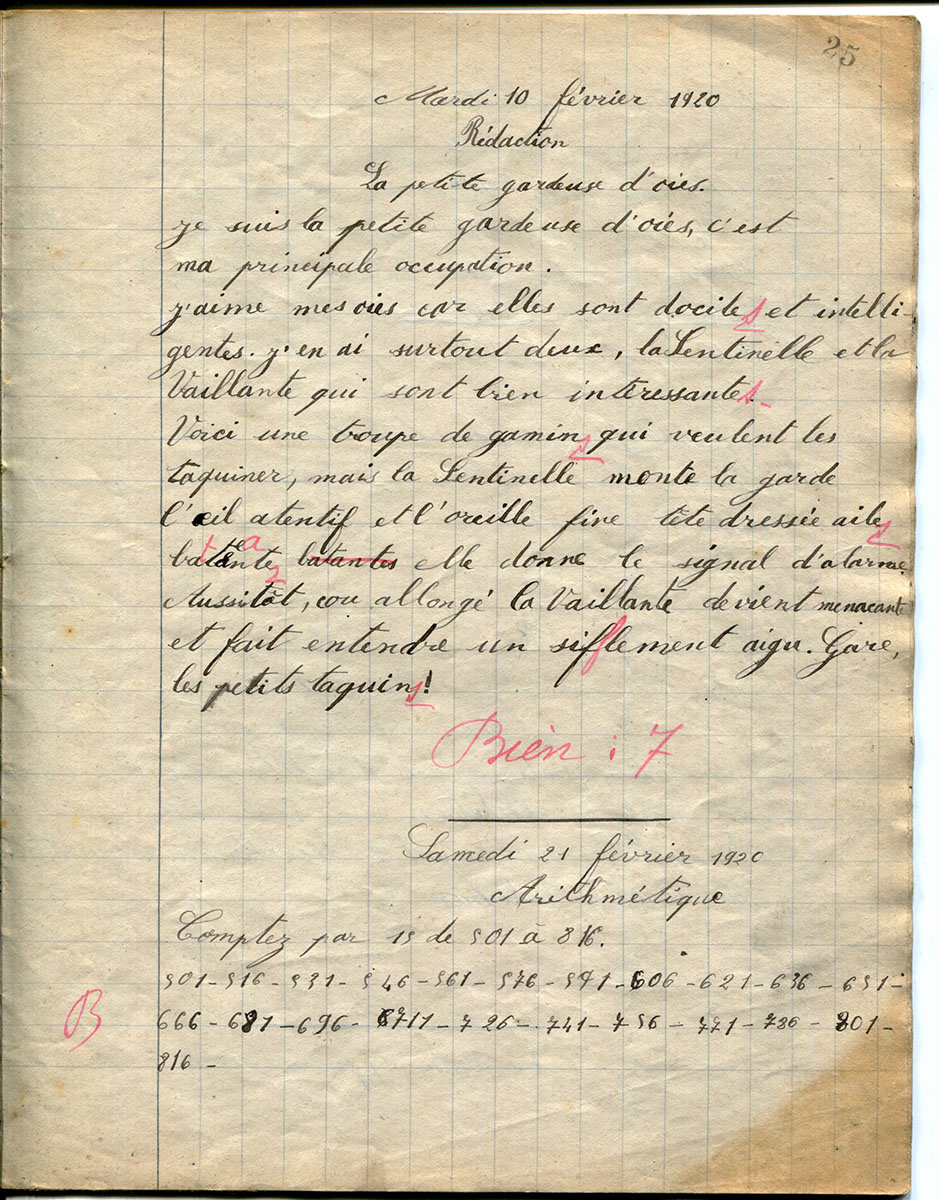 25
Mardi 10 février 1920
Rédaction
La petite gardeuse d'oies.
je suis la petite gardeuse d'oies, c'est
ma principale occupation.
j'aime mes oies car elles sont dociles et intelli-
gentes. j'en ai surtout deux, la Sentinelle et la
Vaillante qui sont bien intéressantes.
Voici une troupe de gamins qui veulent les
taquiner, mais la Sentinelle monte la garde
l'œil atentif et l'oreille fine tête dressée ailes
batantes batantes elle donne le signal d'alarme.
Aussitôt, cou allongé la Vaillante devient menacante
et fait entendre un sifflement aigu. Gare,
les petits taquins!
Bien : 7
Samedi 21 février 1920
Arithmétique
Comptez par 15 de 501 à 816.
501 - 516 - 531 - 546 - 561 - 576 - 591 - 606 - 621 - 636 - 651 -
B
666 - 681 - 696 - 711 - 726 - 741 - 756 - 771 - 786 - 801 -
816 -